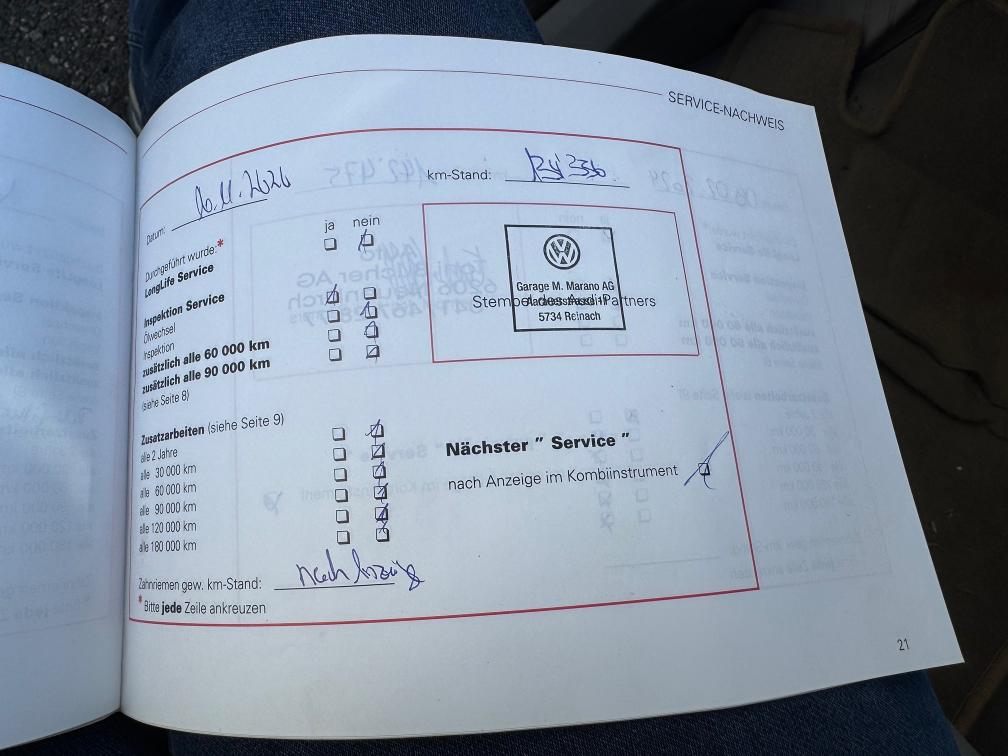 SERVICE-NACHWEIS
Datum: km-Stand:
ja nein
Durchgeführt wurde:*
LongLife Service
Inspektion Service
Ölwechsel
Inspektion
zusätzlich alle 60 000 km
zusätzlich alle 90 000 km
(siehe Seite 8)
Garage M. Marano AG
Stempel des Audi Partners
5734 Reinach
Zusatzarbeiten (siehe Seite 9)
alle 2 Jahre
alle 30 000 km
alle 60 000 km
alle 90 000 km
alle 120 000 km
alle 180 000 km
Nächster " Service "
nach Anzeige im Kombiinstrument
Zahnriemen gew. km-Stand: nach
* Bitte jede Zeile ankreuzen
21